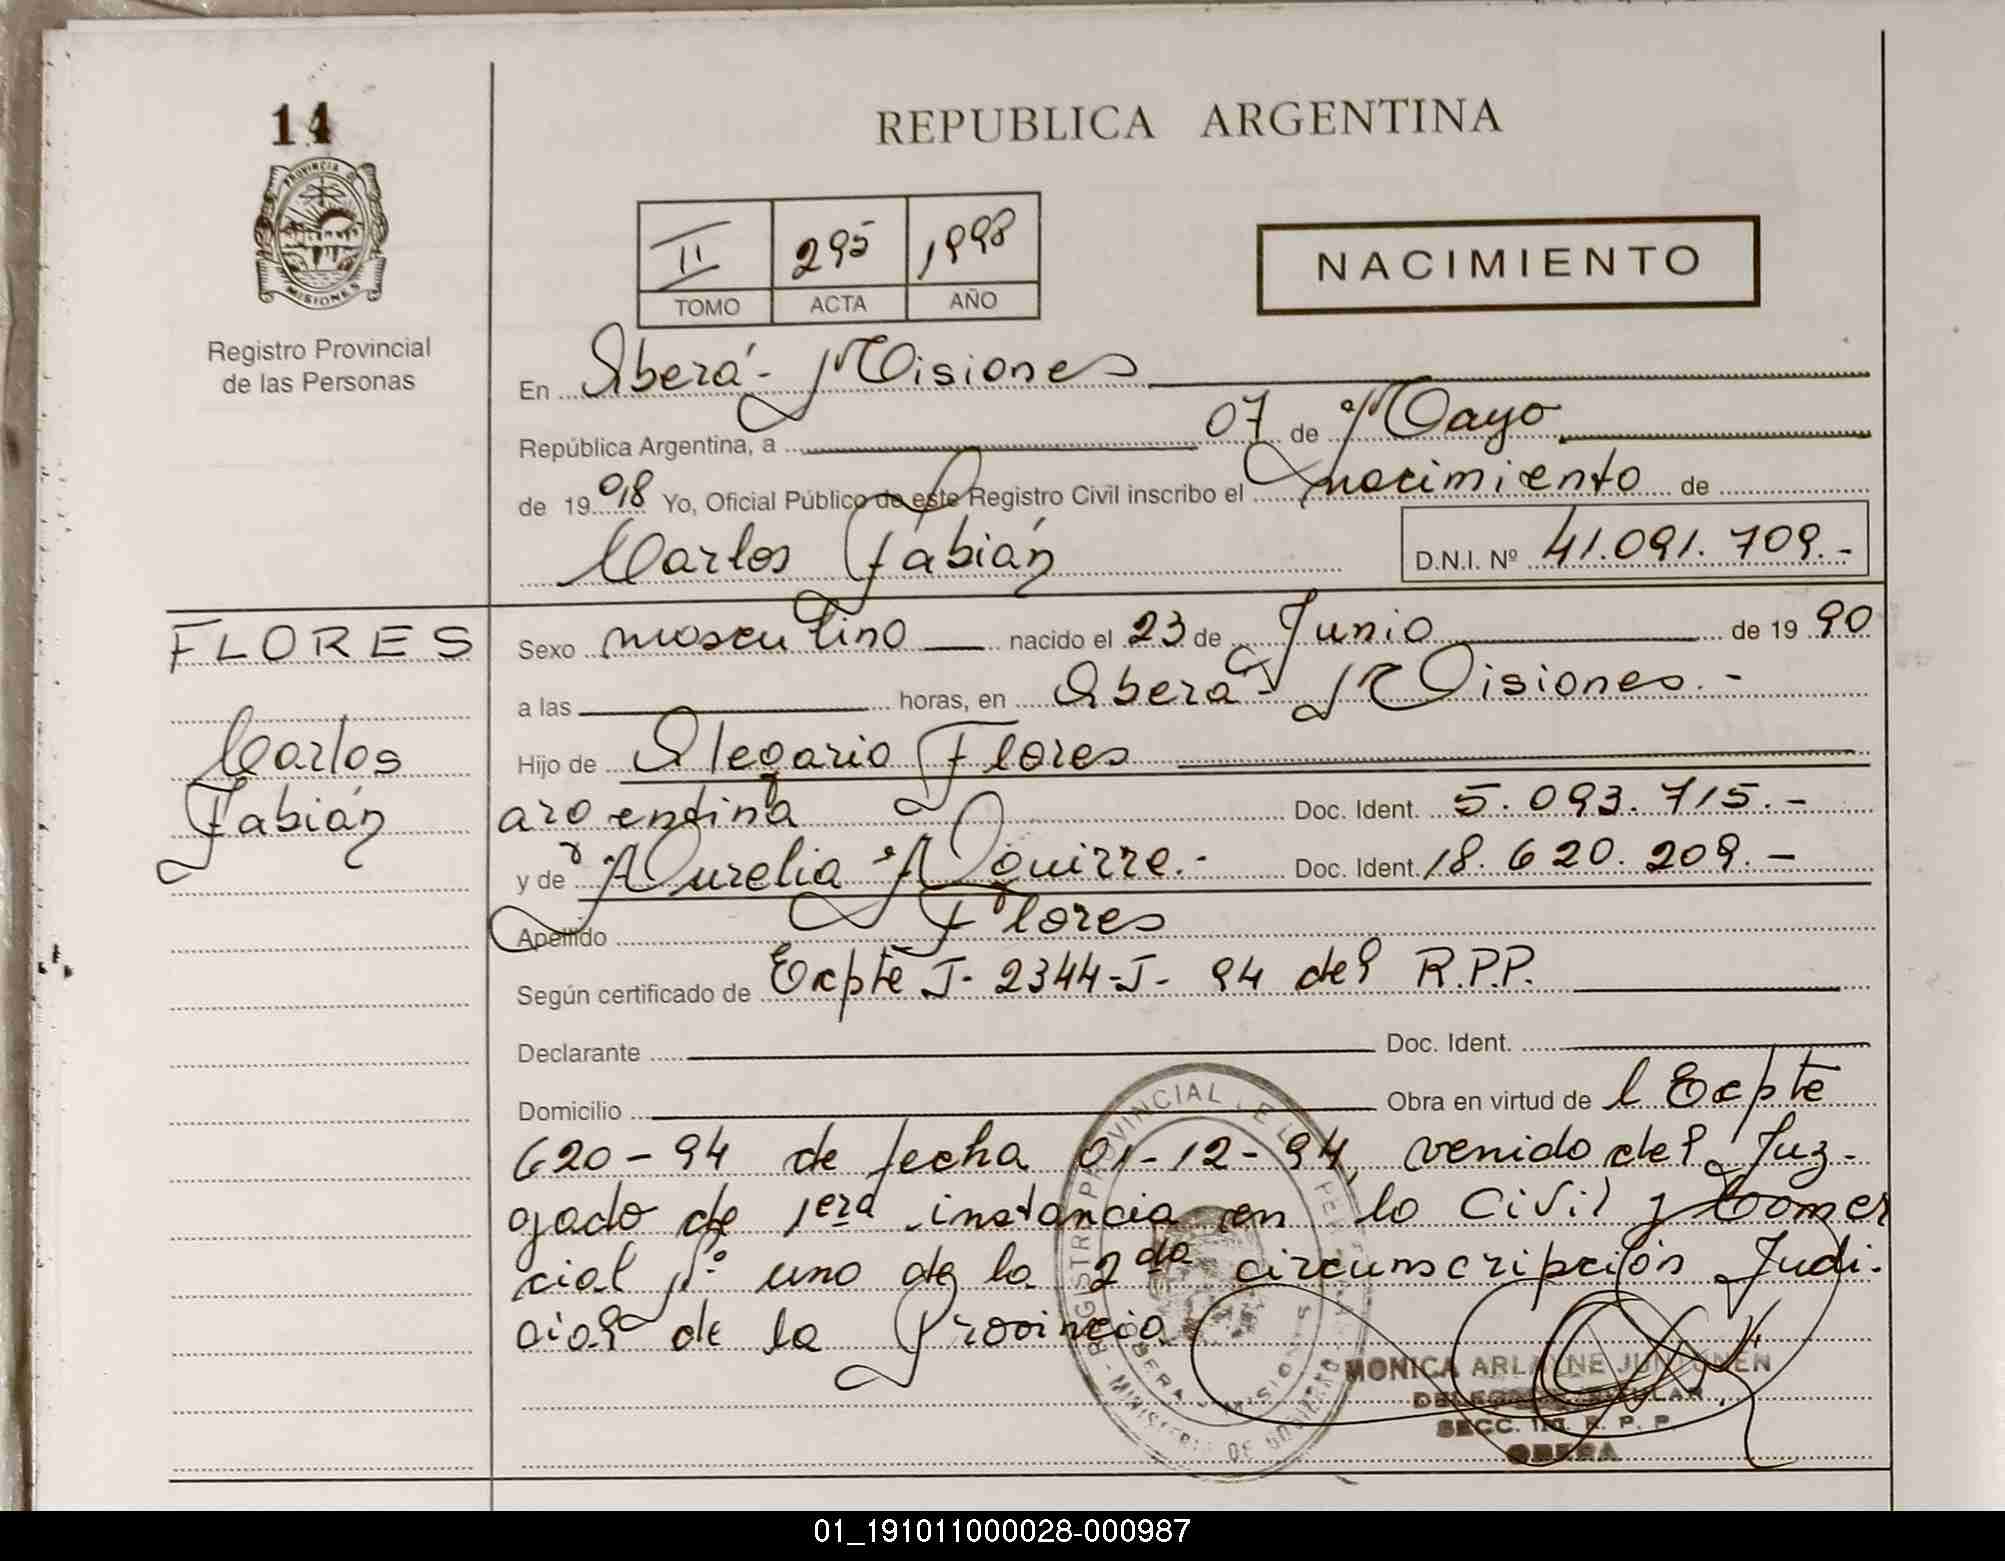 14
REPUBLICA ARGENTINA
PROVINCIA D
MISIONES
Registro Provincial
de las Personas
II 295 1998
TOMO ACTA AÑO
NACIMIENTO
En Oberá - Misiones
República Argentina, a 07 de Mayo
de 1998 Yo, Oficial Público de este Registro Civil inscribo el nacimiento de
Carlos Fabián D.N.I. Nº 41.091.709.-
FLORES
Carlos
Fabián
Sexo masculino nacido el 23 de Junio de 1990
a las horas, en Oberá - Misiones.-
Hijo de Olegario Flores
argentina Doc. Ident. 5.093.715.-
y de Aurelia Aguirre.- Doc. Ident. 18.620.209.-
Apellido Flores
Según certificado de Expte J-2344-J-94 del R.P.P.
Declarante Doc. Ident.
Domicilio Obra en virtud de l Expte
620-94 de fecha 01-12-94, venido del Juz-
gado de 1era instancia en lo Civil y Comer
cial Nº uno de la 2da circunscripción Judi-
cial de la Provincia
REGISTRO PROVINCIAL DE LAS PER
OBERA - MISIONES
MINISTERIO DE GOBIERNO
MONICA ARLAENE JUNTUNEN
DELEGADA TITULAR
SECC. R. P. P.
OBERA
01_191011000028-000987